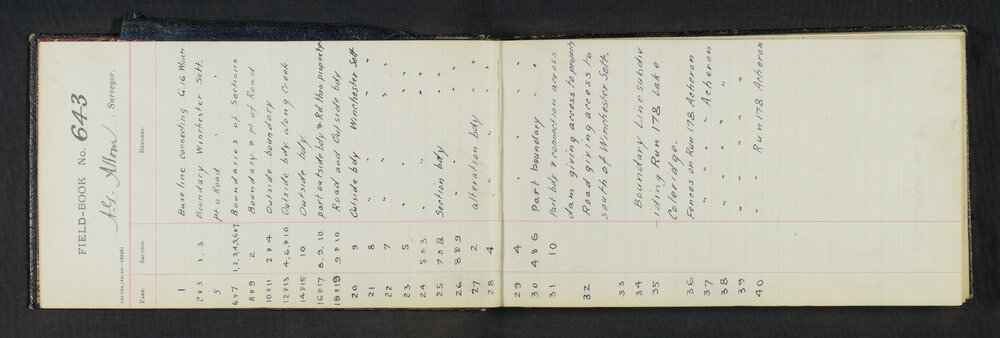 FIELD-BOOK No. 643
A.G. Allom, Surveyor.
Page. Section. Remarks.
1 Baseline connecting G.16 Winch
2 & 3 1, 3 Boundary Winchester Sett.
5 pt o Road " "
6 & 7 1,2,3,4,5,6 & 7 Boundaries of Sections
8 & 9 2 Boundary & pt of Road
10 & 11 2 & 4 Outside boundary
12 & 13 4, 6, & 10 Outside bdy along Creek
14 & 15 10 Outside bdy.
16 & 17 8, 9, 10 part outside bdy & Rd thro property
18 & 19 9 & 10 Road and Outside bdy.
20 9 Outside bdy Winchester Sett
21 8 " " "
22 7 " " "
23 5 " " "
24 5 & 3 " " "
25 7 & 8 Section bdy "
26 8 & 9 " " "
27 2 alteration bdy "
28 4 " " "
29 4 " " "
30 4 & 6 Part boundary "
31 10 Part bdy & connection across
dam giving access to property
32 Road giving access to
south of Winchester Sett.
33
34 Boundary Line subdiv
35 iding Run 178 Lake
Coleridge.
36 Fences on Run 178 Acheron
37 " " Acheron
38 " " "
39 " " "
40 " Run 178 Acheron